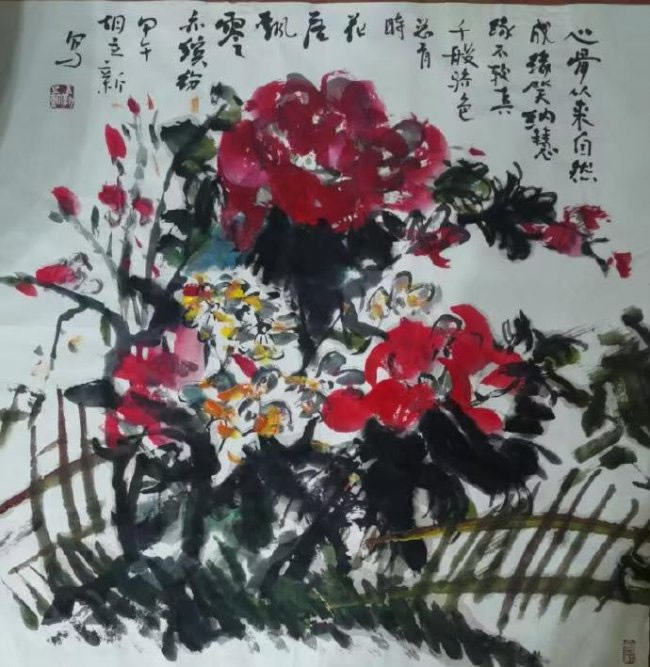 心骨从来自然
成缘笑
缘不较真
千般色
总有
時
花
落
飘
零
亦缤纷
甲午
胡立新
写